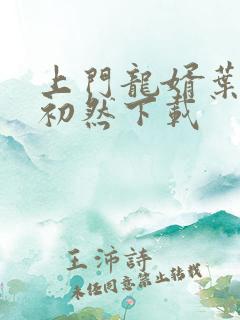 上門龍婿葉
初然下載
王沛詩
未经同意禁止转载